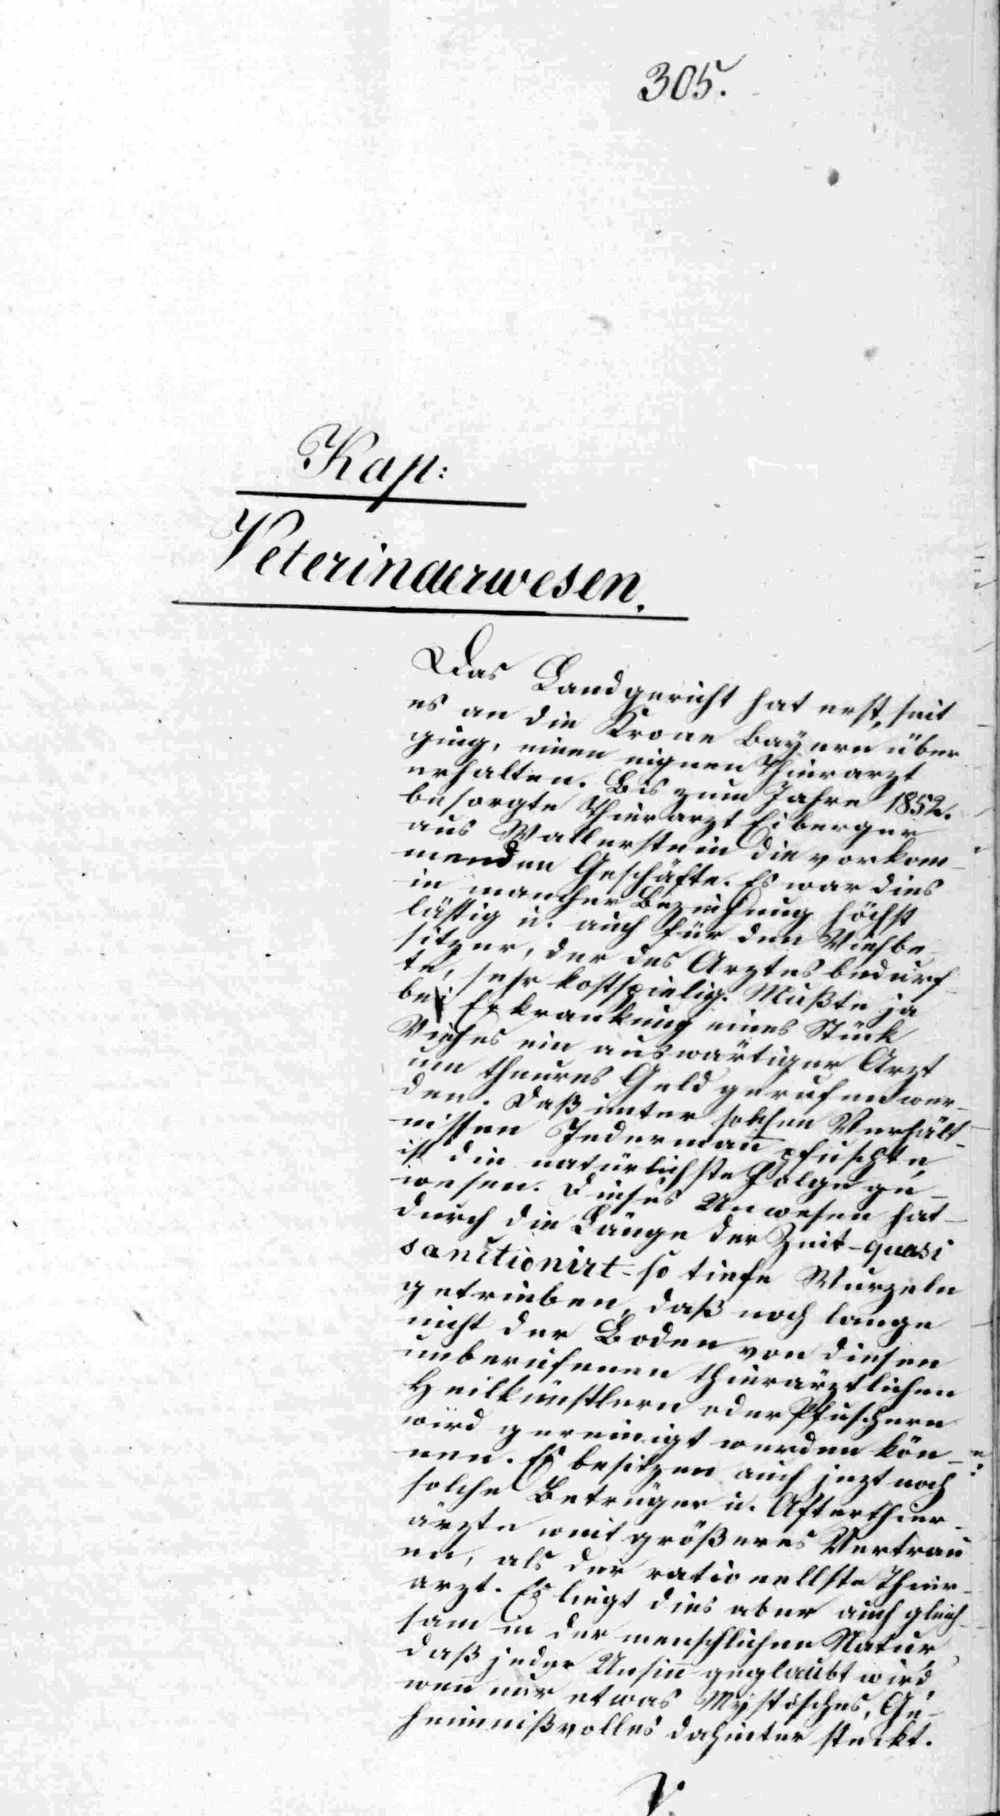 305.
Kap:
Veterinaerwesen.
Das Landgericht hat erst, seit
es an die Krone Bayern über
ging, einen eignen Thierarzt
erhalten. Bis zum Jahre 1852.
besorgte Thierarzt Eiberger
aus Wallerstein die vorkom-
menden Geschäfte. Es war dies
in mancher Beziehung höchst
lästig u. auch für den Viehbe-
sitzer, der des Arztes bedurf-
te, sehr kostspielig. Mußte ja
bei Erkrankung eines Stück
Viehes ein auswärtiger Arzt
um theures Geld gerufen wer-
den. Daß unter solchen Verhält-
nissen Jedermann pfuschte,
ist die natürlichste Folge ge-
wesen. Dieses Unwesen hat-
durch die Länge der Zeit-quasi
sanctionirt-so tiefe Wurzeln
getrieben, daß noch lange
nicht der Boden von diesen
unberufenen thierärztlichen
Heilkünstlern oder Pfuschern
wird gereinigt werden kön-
nen. Es besitzen auch jezt noch
solche Betrüger u. Afterthier-
ärzte weit größeres Vertrau
en, als der rationellste Thier-
arzt. Es liegt dies aber auch gleich-
sam in der menschlichen Natur,
daß jeder Unsin̄ geglaubt wird,
wen̄ nur etwas Mystisches, Ge-
heimnißvolles dahinter steckt.